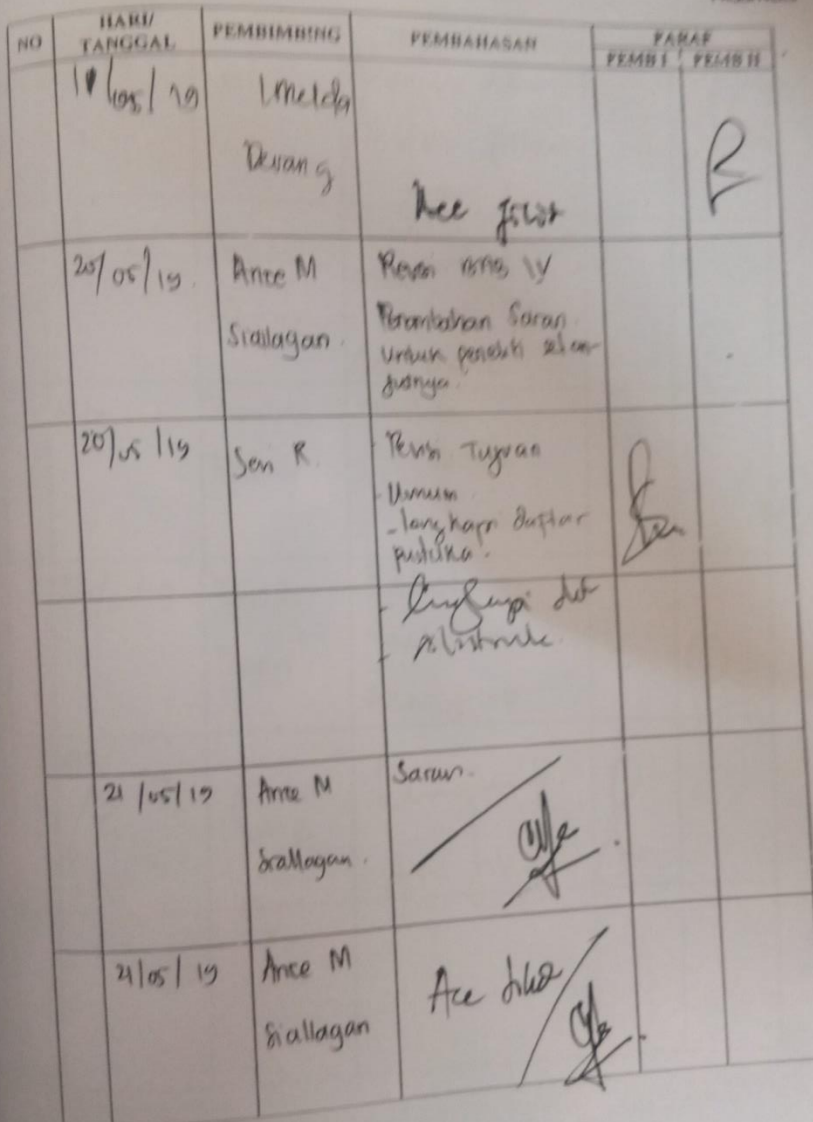 NO HARI/ TANGGAL PEMBIMBING PEMBAHASAN PARAF
PEMB I PEMB II
/05/19 Imelda
Derang
Acc
20/05/19 Ance M
Siallagan
Revisi BAB IV
Penambahan Saran
untuk peneliti selan-
jutnya.
20/05/19 Seri R
Revisi Tujuan
Umum
- lengkapi daftar
pustaka.
- lengkapi
- Abstrak
21/05/19 Ance M
Siallagan.
Saran.
21/05/19 Ance M
Siallagan
Acc